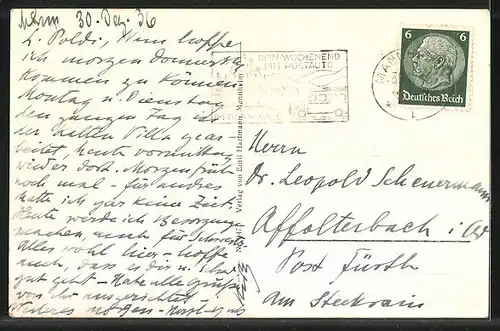 Mhm 30. Dez. 36
L. Poldi, Wenn hoffe
ich morgen Donnerstag
kommen zu können
Montag u. Dienstag
den ganzen Tag in
der alten Villa gear-
beitet, heute vormittag
wieder dort. Morgen früh
noch mal - für andres
hatte ich gar keine Zeit.
Heute werde ich Besorgung
machen, auch für
Alles wohl hier - hoffe
auch, dass es Dir u.
gut geht - Habe alle Grüße
von Dir ausgerichtet -
Weiteres morgen
Verlag von Emil Hartmann, Mannheim
WOCHENEND
MIT POSTAUTO
6 6
Deutsches Reich
Herrn
Dr. Leopold Scheuermann
Affolterbach i. Od
Post Fürth
Am Steckrain